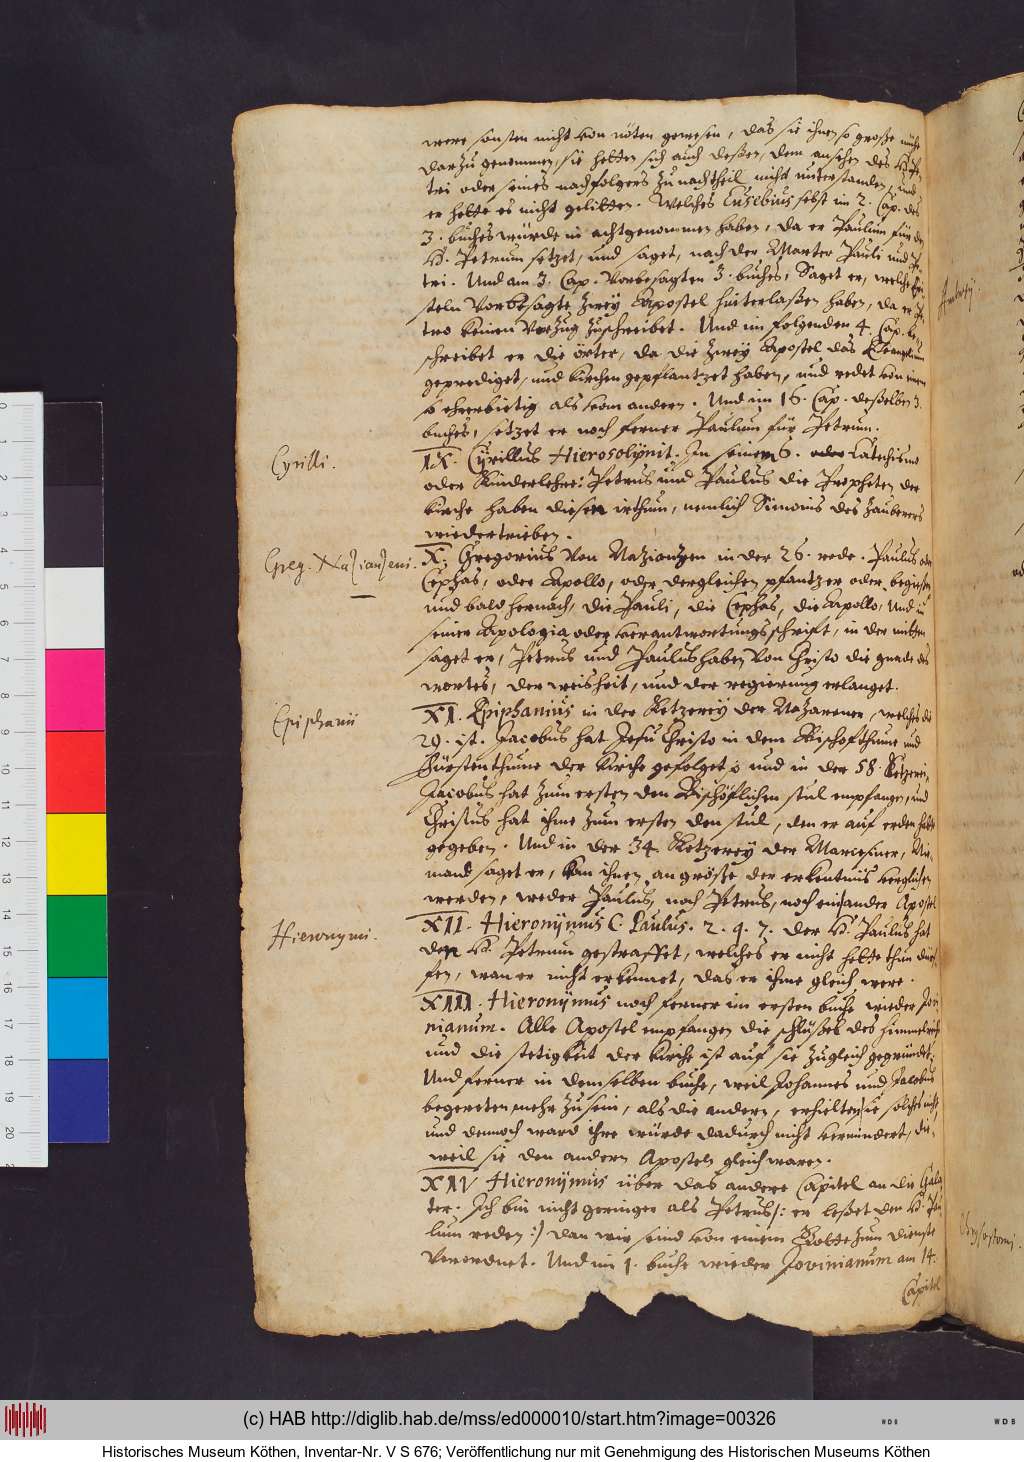 were sonsten nicht von nöten gewesen, das sie ihnen so große mühe
darzu genommen, sie hetten sich auch deßen, dem ansehen des H. Pe-
tri oder seines nachfolgers zu nachtheil nicht unterstanden, und
er hette es nicht gelitten. Welches Eusebius selbst im 2. Cap. des
3. buches würde in acht genommen haben, da er Paulum für den
H. Petrum setzet, und saget, nach der Marter Pauli und Pe-
tri. Und am 3. Cap. vorbesagten 3. buches, Saget er, welche
steln vorbesagte zwey Apostel hinterlaßen haben, da er Pe-
tro keinen vorzug zuschreibet. Und im folgenden 4. Cap. be-
schreibet er die örter, da die zwey Apostel das Evangelium
geprediget, und kirchen gepflantzet haben, und redet von einem
so ehrerbietig als vom andern. Und im 16. Cap. deßelben 3.
buches, setzet er noch ferner Paulum für Petrum.
Cyrilli.
IX. Cyrillus Hierosolymit. In seinem 6. Catechismo
oder Kinderlehre: Petrus und Paulus die Propheten der
kirche haben diesen irthum, nemlich Simonis des Zauberers
wiedertrieben.
Greg. Nazianzeni.
X. Gregorius von Nazianzen in der 26. rede. Paulus oder
Cephas, oder Apollo, oder dergleichen pflantzer oder begießer
und bald hernach, die Pauli, die Cephas, die Apollo, Und in
seiner Apologia oder verantwortungs schrift, in der mitten
saget er, Petrus und Paulus haben von Christo die gnade des
wortes, der weisheit, und der regierung erlanget.
Epiphanii
XI. Epiphanius in der Ketzerey der Nazarener, welches die
29. ist. Jacobus hat Jesu Christo in dem Bischofthume und
Fürstenthume der kirche gefolget, und in der 58. Ketzerei,
Jacobus hat zum ersten den Bischöflichen stul empfangen, und
Christus hat ihme zum ersten den stul, den er auf erden hatte
gegeben. Und in der 34. Ketzerey der Marcosiner, Nie-
mand saget er, kan ihnen an größe der erkentnüs verglichen
werden, weder Paulus, noch Petrus, noch ein ander Apostel
Hieronymi.
XII. Hieronymus C. Paulus. 2. q. 7. der H. Paulus hat
den H. Petrum gestraffet, welches er nicht hette thun dürf-
fen, wan er nicht erkennet, das er ihme gleich were.
XIII. Hieronymus noch ferner im ersten buche wieder Jovi-
nianum. Alle Apostel empfangen die schlüßel des himmelreichs
und die stetigkeit der kirche ist auf sie zugleich gegründet.
Und ferner in demselben buche, weil Johannes und Jacobus
begereten mehr zu sein, als die andern, erhielten sie solches nicht,
und dennoch ward ihre würde dadurch nicht vermindert, die-
weil sie den andern Aposteln gleich waren.
XIV Hieronymus über das andere Capitel an die Gala-
ter. Ich bin nicht geringer als Petrus /: er leßet den H. Pau-
lum reden :/ dan wir seind von einem Gotte zum dienste
verordnet. Und im 1. buche wieder Jovinianum am 14.
Capitel
Chrysostomi.
(c) HAB http://diglib.hab.de/mss/ed000010/start.htm?image=00326
Historisches Museum Köthen, Inventar-Nr. V S 676; Veröffentlichung nur mit Genehmigung des Historischen Museums Köthen